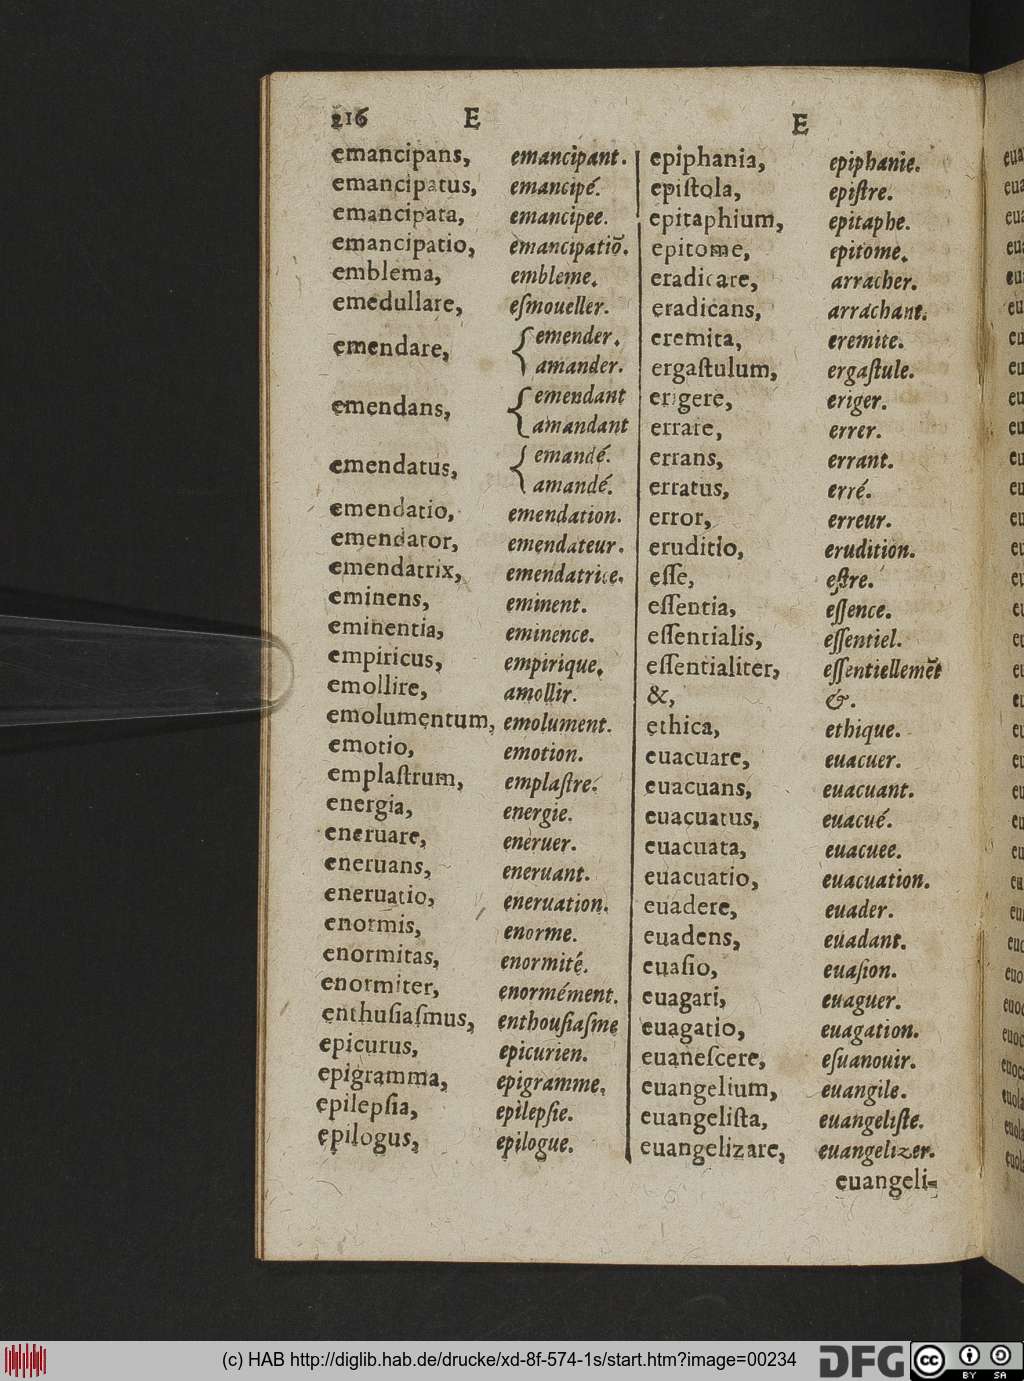 216 E E
emancipans, emancipant.
emancipatus, emancipé.
emancipata, emancipee.
emancipatio, emancipatiõ.
emblema, embleme.
emedullare, eſmoueller.
emendare, { emender.
amander.
emendans, { emendant
amandant
emendatus, { emandé.
amandé.
emendatio, emendation.
emendator, emendateur.
emendatrix, emendatrice.
eminens, eminent.
eminentia, eminence.
empiricus, empirique.
emollire, amollir.
emolumentum, emolument.
emotio, emotion.
emplaſtrum, emplaſtre.
energia, energie.
eneruare, eneruer.
eneruans, eneruant.
eneruatio, eneruation.
enormis, enorme.
enormitas, enormité.
enormiter, enormément.
enthuſiaſmus, enthouſiaſme
epicurus, epicurien.
epigramma, epigramme.
epilepſia, epilepſie.
epilogus, epilogue.
epiphania, epiphanie.
epiſtola, epiſtre.
epitaphium, epitaphe.
epitome, epitome.
eradicare, arracher.
eradicans, arrachant.
eremita, eremite.
ergaſtulum, ergaſtule.
erigere, eriger.
errare, errer.
errans, errant.
erratus, erré.
error, erreur.
eruditio, erudition.
eſſe, eſtre.
eſſentia, eſſence.
eſſentialis, eſſentiel.
eſſentialiter, eſſentiellemẽt
&, &.
ethica, ethique.
euacuare, euacuer.
euacuans, euacuant.
euacuatus, euacué.
euacuata, euacuee.
euacuatio, euacuation.
euadere, euader.
euadens, euadant.
euaſio, euaſion.
euagari, euaguer.
euagatio, euagation.
euaneſcere, eſuanouir.
euangelium, euangile.
euangeliſta, euangeliſte.
euangelizare, euangelizer.
euangeli-
(c) HAB http://diglib.hab.de/drucke/xd-8f-574-1s/start.htm?image=00234
DFG cc BY SA